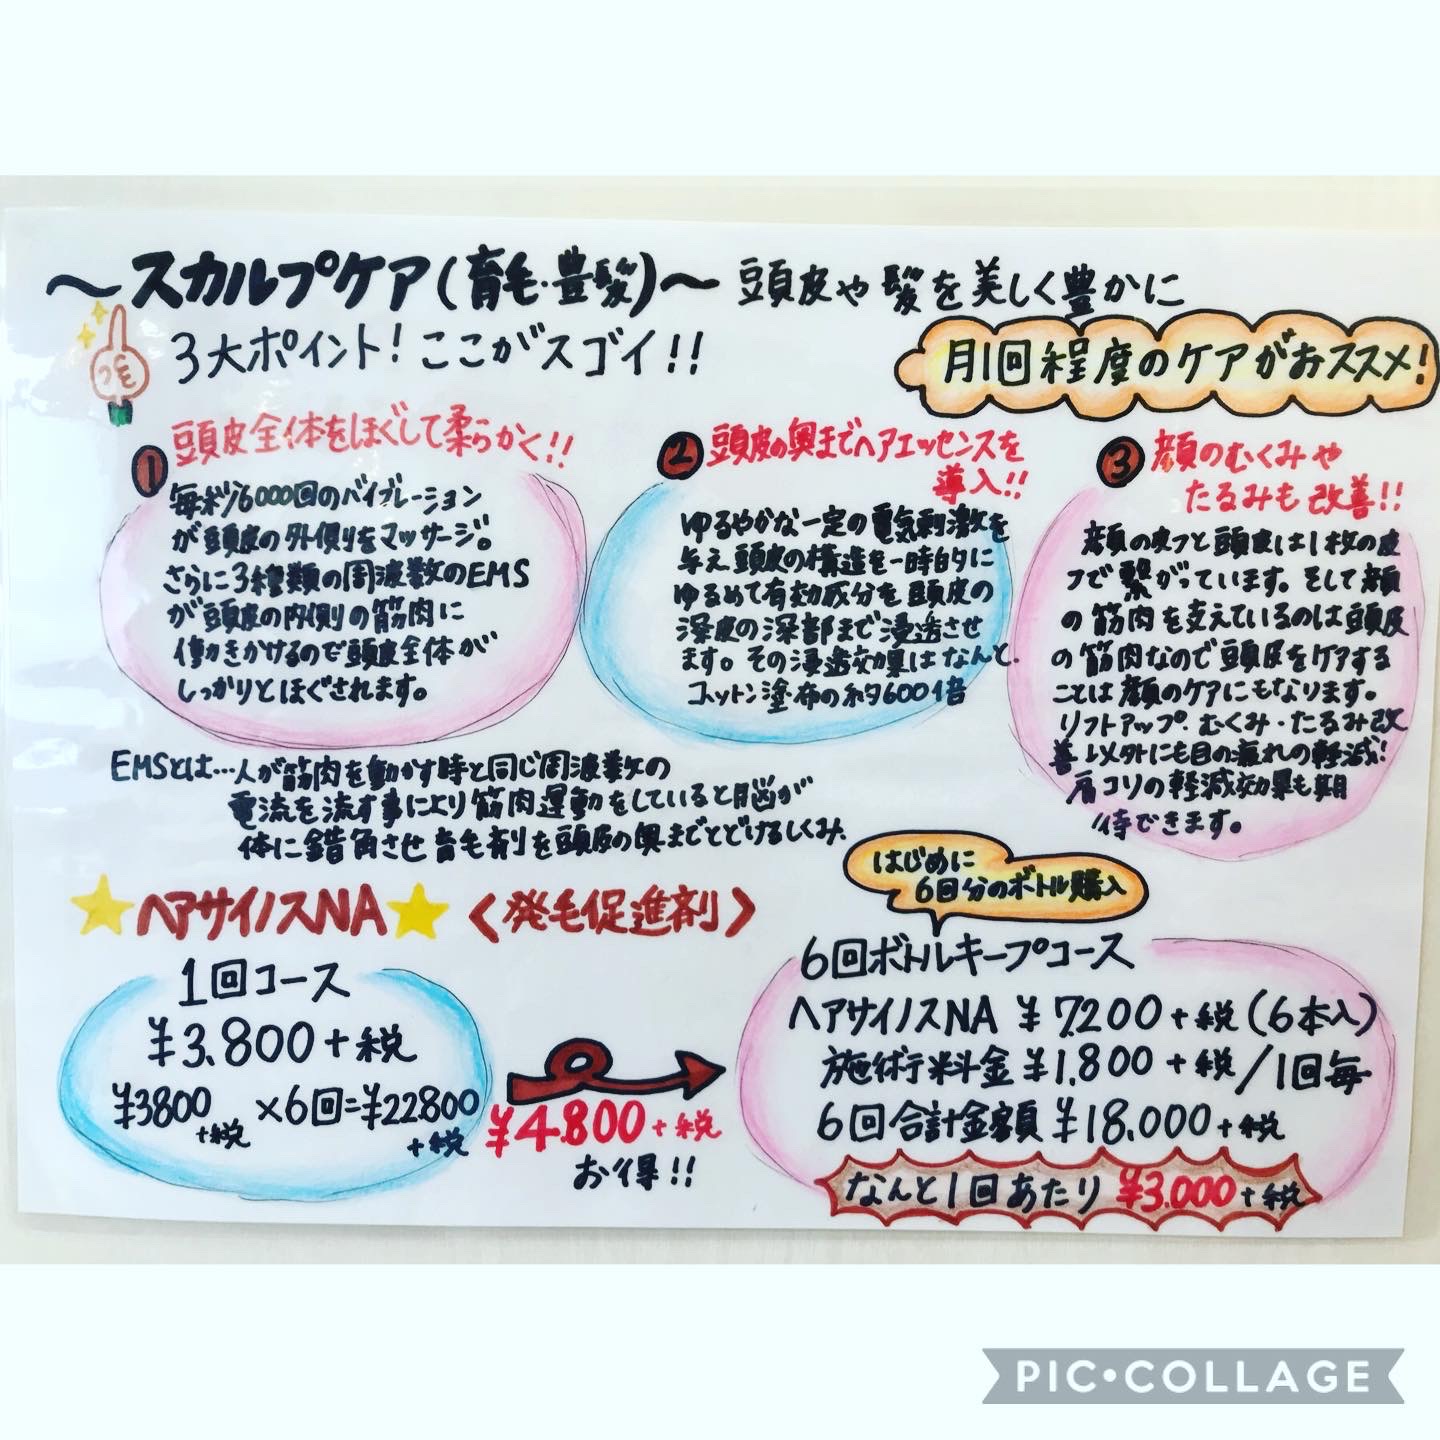 ～スカルプケア(育毛・豊髪)～ 頭皮や髪を美しく豊かに
3大ポイント!ここがスゴイ!!
月1回程度のケアがおススメ!
① 頭皮全体をほぐして柔らかく!!
毎秒16000回のバイブレーション
が頭皮の外側をマッサージ。
さらに3種類の周波数のEMS
が頭皮の内側の筋肉に
働きかけるので頭皮全体が
しっかりとほぐされます。
② 頭皮の奥までヘアエッセンスを
導入!!
ゆるやかな一定の電気刺激を
与え頭皮の構造を一時的に
ゆるめて有効成分を頭皮の
深皮の深部まで浸透させ
ます。その浸透効果はなんと、
コットン塗布の約600倍
③ 顔のむくみや
たるみも改善!!
顔の皮フと頭皮は1枚の皮
フで繋がっています。そして顔
の筋肉を支えているのは頭皮
の筋肉なので頭皮をケアする
ことは顔のケアにもなります。
リフトアップ・むくみ・たるみ改
善以外にも目の疲れの軽減!
肩コリの軽減効果も期
待できます。
EMSとは…人が筋肉を動かす時と同じ周波数の
電流を流す事により筋肉運動をしていると脳が
体に錯角させ育毛剤を頭皮の奥までとどけるしくみ。
★ヘアサイノスNA★ <発毛促進剤>
1回コース
¥3.800+税
¥3800+税×6回=¥22800+税
¥4.800+税
お得!!
はじめに
6回分のボトル購入
6回ボトルキープコース
ヘアサイノスNA ¥7.200+税(6本入)
施術料金¥1.800+税/1回毎
6回合計金額¥18.000+税
なんと1回あたり¥3.000+税
PIC•COLLAGE